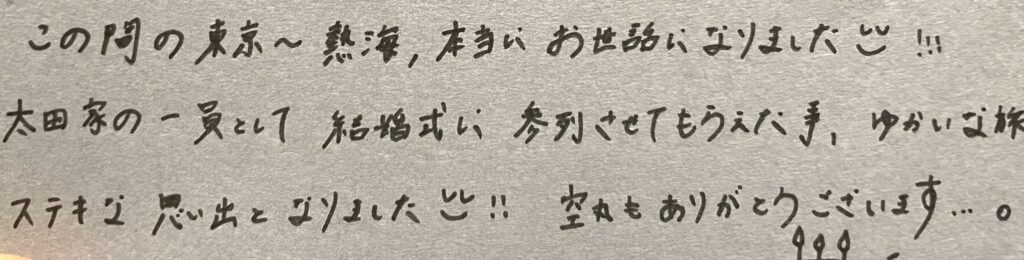 この間の東京〜熱海,本当に お世話になりました !!!
太田家の一員として 結婚式に 参列させてもらえた事, ゆかいな旅
ステキな 思い出と なりました !! 空丸もありがとうございます…。